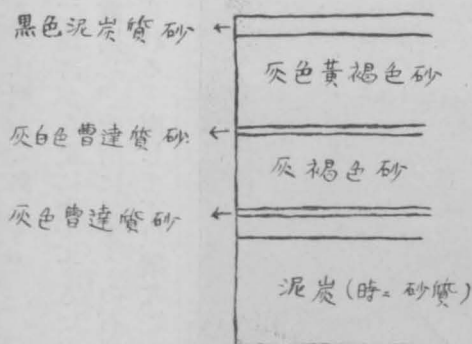 黒色泥炭質砂
灰色黃褐色砂
灰白色曹達質砂
灰褐色砂
灰色曹達質砂
泥炭(時ニ砂質)